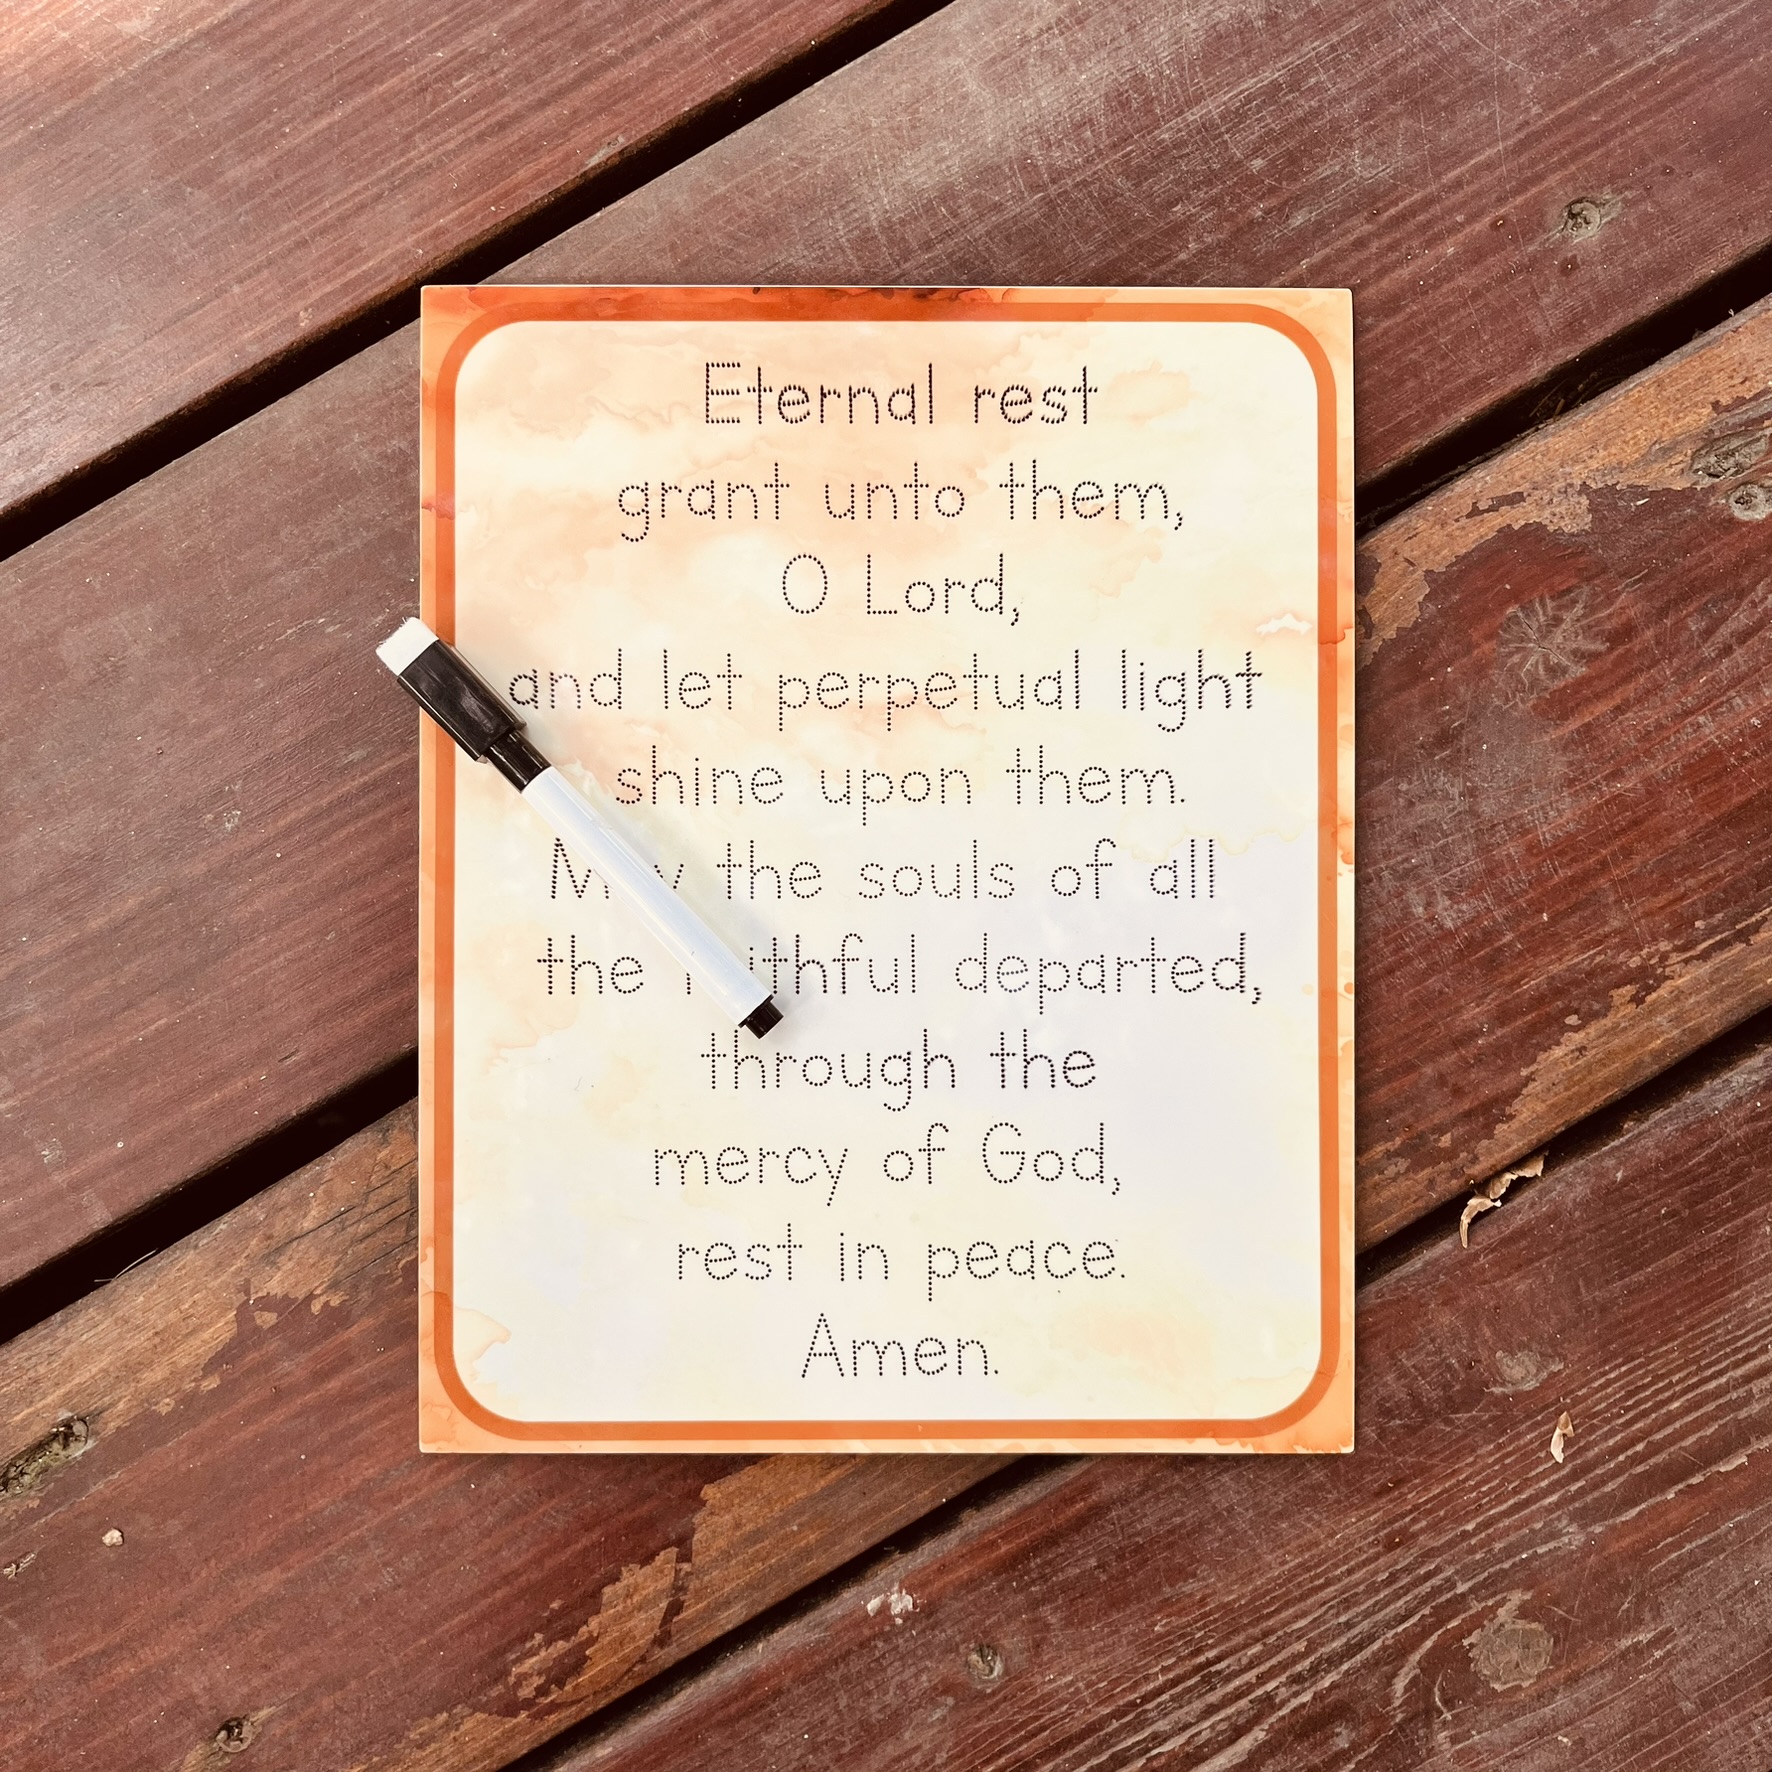 Eternal rest
grant unto them,
O Lord,
and let perpetual light
shine upon them.
May the souls of all
the faithful departed,
through the
mercy of God,
rest in peace.
Amen.